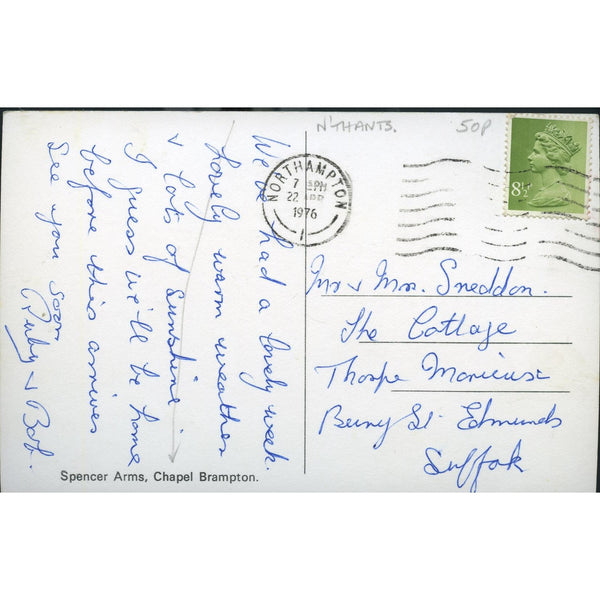 N'THANTS.
50P
8½P
NORTHAMPTON
7 PM
22 APR
1976
We've had a lovely week.
Lovely warm weather
& lots of Sunshine
I guess we'll be home
before this arrives
See you soon
Ruby & Bob.
Mr & Mrs. Sneddon.
The Cottage
Thorpe Morieux
Bury St. Edmunds
Suffolk
Spencer Arms, Chapel Brampton.